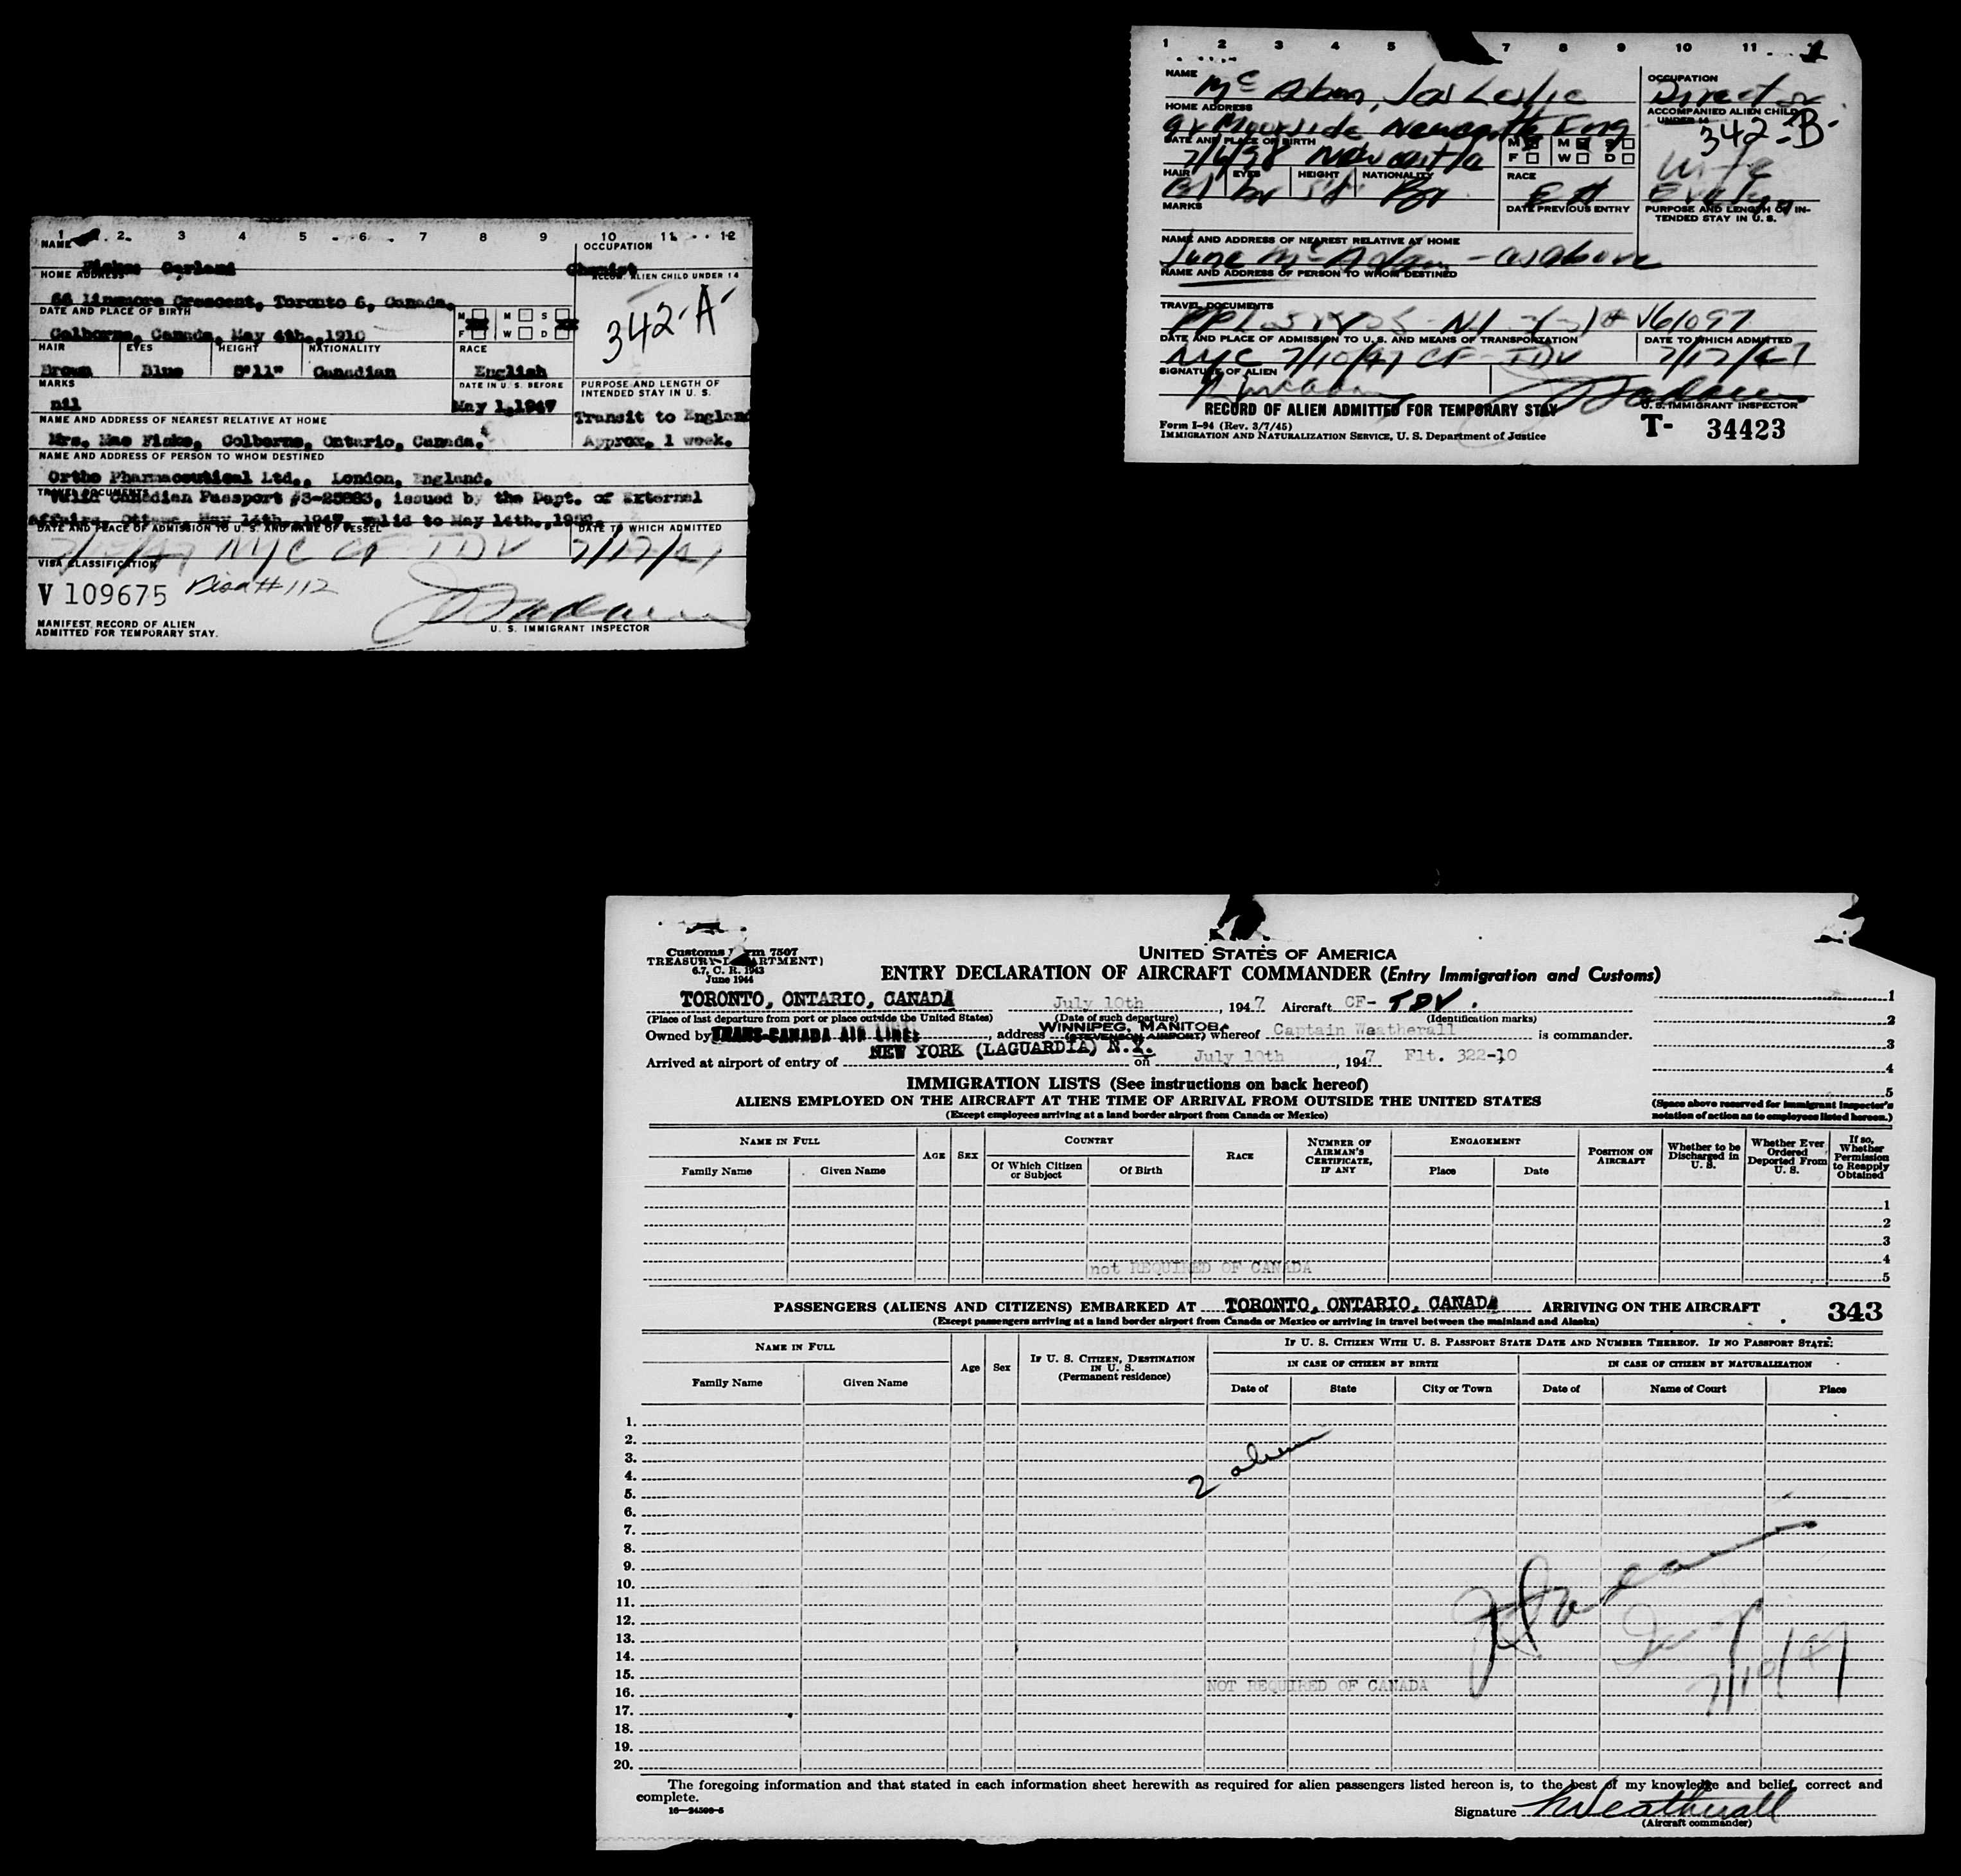 1 2 3 4 5 6 7 8 9 10 11 12
NAME OCCUPATION
Garland Chemist
HOME ADDRESS ACCOM. ALIEN CHILD UNDER 14
66 Linsmore Crescent, Toronto 6, Canada. 342-A-
DATE AND PLACE OF BIRTH M F M W S D
Colborne, Canada, May 4th.,1910
HAIR EYES HEIGHT NATIONALITY RACE
Brown Blue 5'11" Canadian English
MARKS DATE IN U. S. BEFORE PURPOSE AND LENGTH OF INTENDED STAY IN U. S.
nil May 1,1947 Transit to England
NAME AND ADDRESS OF NEAREST RELATIVE AT HOME
Mrs. Mae Colborne, Ontario, Canada. Approx. 1 week.
NAME AND ADDRESS OF PERSON TO WHOM DESTINED
Ortho Pharmaceutical Ltd., London, England.
TRAVEL DOCUMENTS
Valid Canadian Passport issued by the Dept. of External
Affairs, Ottawa, May 14th.,1947, valid to May 14th.,
DATE AND PLACE OF ADMISSION TO U. S. AND NAME OF VESSEL DATE TO WHICH ADMITTED
7/10/47 NYC CF-TDV 7/17/47
VISA CLASSIFICATION
V 109675 Visa # 112
MANIFEST RECORD OF ALIEN
ADMITTED FOR TEMPORARY STAY.
U. S. IMMIGRANT INSPECTOR
1 2 3 4 5 7 8 9 10 11
NAME OCCUPATION
McAdam, Jos Leslie Director
HOME ADDRESS ACCOMPANIED ALIEN CHILD UNDER 14
Moorside Newcastle Eng 342-B-
DATE AND PLACE OF BIRTH M F M W S D
Newcastle Wife
HAIR EYES HEIGHT NATIONALITY RACE
Bl br Br Evelyn
MARKS DATE PREVIOUS ENTRY PURPOSE AND LENGTH OF INTENDED STAY IN U. S.
NAME AND ADDRESS OF NEAREST RELATIVE AT HOME
June McAdam - as above
NAME AND ADDRESS OF PERSON TO WHOM DESTINED
TRAVEL DOCUMENTS
V61097
DATE AND PLACE OF ADMISSION TO U. S. AND MEANS OF TRANSPORTATION DATE TO WHICH ADMITTED
NYC 7/10/47 CF-TDV 7/17/47
SIGNATURE OF ALIEN
RECORD OF ALIEN ADMITTED FOR TEMPORARY STAY U. S. IMMIGRANT INSPECTOR
Form I-94 (Rev. 3/7/45)
IMMIGRATION AND NATURALIZATION SERVICE, U. S. Department of Justice T- 34423
Customs Form 7507
TREASURY DEPARTMENT
6.7, C. R. 1943
June 1944
UNITED STATES OF AMERICA
ENTRY DECLARATION OF AIRCRAFT COMMANDER (Entry Immigration and Customs)
TORONTO, ONTARIO, CANADA July 10th , 1947 Aircraft CF-TDV. 1
(Place of last departure from port or place outside the United States) (Date of such departure) (Identification marks) 2
Owned by TRANS-CANADA AIR LINES , address WINNIPEG, MANITOBA (STEVENSON AIRPORT) whereof Captain Weatherall is commander. 3
Arrived at airport of entry of NEW YORK (LAGUARDIA) N.Y. on July 10th , 1947 Flt. 322-10 4
5
IMMIGRATION LISTS (See instructions on back hereof)
ALIENS EMPLOYED ON THE AIRCRAFT AT THE TIME OF ARRIVAL FROM OUTSIDE THE UNITED STATES
(Except employees arriving at a land border airport from Canada or Mexico)
(Space above reserved for immigrant inspector's notation of action as to employees listed hereon.)
NAME IN FULL AGE SEX COUNTRY RACE NUMBER OF AIRMAN'S CERTIFICATE, IF ANY ENGAGEMENT POSITION ON AIRCRAFT Whether to be Discharged in U. S. Whether Ever Ordered Deported From U. S. If so, Whether Permission to Reapply Obtained
Family Name Given Name Of Which Citizen or Subject Of Birth Place Date
1
2
3
4
not REQUIRED OF CANADA
5
PASSENGERS (ALIENS AND CITIZENS) EMBARKED AT TORONTO, ONTARIO, CANADA ARRIVING ON THE AIRCRAFT 343
(Except passengers arriving at a land border airport from Canada or Mexico or arriving in travel between the mainland and Alaska)
NAME IN FULL Age Sex IF U. S. CITIZEN, DESTINATION IN U. S. (Permanent residence) IF U. S. CITIZEN WITH U. S. PASSPORT STATE DATE AND NUMBER THEREOF. IF NO PASSPORT STATE:
IN CASE OF CITIZEN BY BIRTH IN CASE OF CITIZEN BY NATURALIZATION
Family Name Given Name Date of State City or Town Date of Name of Court Place
1.
2.
3.
4.
2 alien
5.
6.
7.
8.
9.
10.
11.
12.
13.
14.
15.
7/10/47
16. NOT REQUIRED OF CANADA
17.
18.
19.
20.
The foregoing information and that stated in each information sheet herewith as required for alien passengers listed hereon is, to the best of my knowledge and belief, correct and
complete.
16—24500-5
Signature Weatherall
(Aircraft commander)